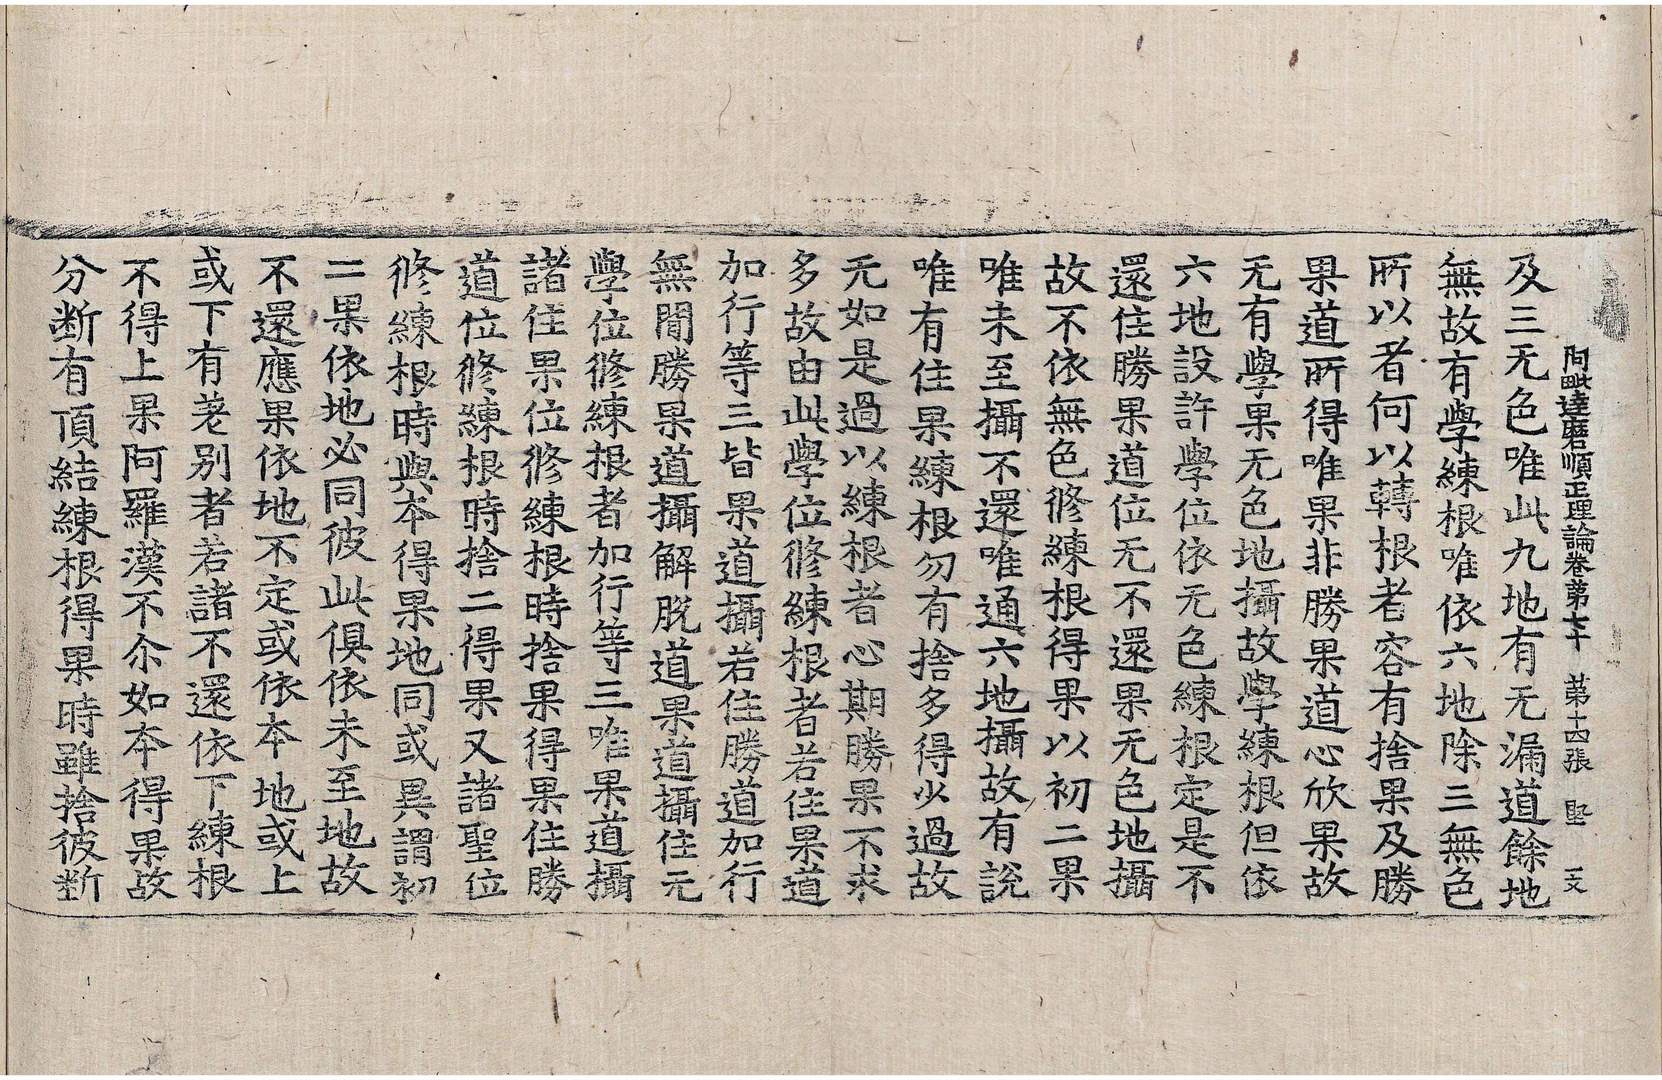 阿毗達磨順正理論卷第七十　第十四張　堅
及三无色唯此九地有无漏道餘地
無故有學練根唯依六地除三無色
所以者何以轉根者容有捨果及勝
果道所得唯果非勝果道心欣果故
无有學果无色地攝故學練根但依
六地設許學位依无色練根定是不
還住勝果道位无不還果无色地攝
故不依無色修練根得果以初二果
唯未至攝不還唯通六地攝故有說
唯有住果練根勿有捨多得少過故
无如是過以練根者心期勝果不求
多故由此學位修練根者若住果道
加行等三皆果道攝若住勝道加行
無間勝果道攝解脫道果道攝住无
學位修練根者加行等三唯果道攝
諸住果位修練根時捨果得果住勝
道位修練根時捨二得果又諸聖位
修練根時與本得果地同或異謂初
二果依地必同彼此俱依未至地故
不還應果依地不定或依本地或上
或下有差別者若諸不還依下練根
不得上果阿羅漢不尒如本得果故
分断有頂結練根得果時雖捨彼断